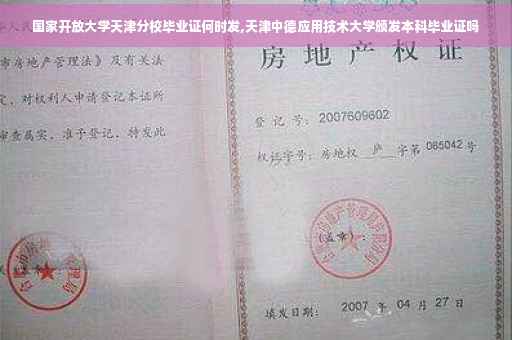 国家开放大学天津分校毕业证何时发,天津中德应用技术大学颁发本科毕业证吗
市房地产管理法》及有关法
定，对权利人申请登记本证所
审查属实，准予登记，特发此
房地产权证
登记号：2007609602
权证字号：房地权 庐 字第 085042 号
(盖章)：
填发日期： 2007 年 04 月 27 日